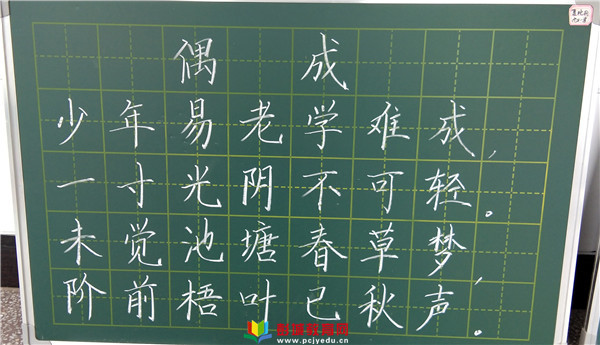 偶成
少年易老学难成，
一寸光阴不可轻。
未觉池塘春草梦，
阶前梧叶已秋声。
www.pcjyedu.cn